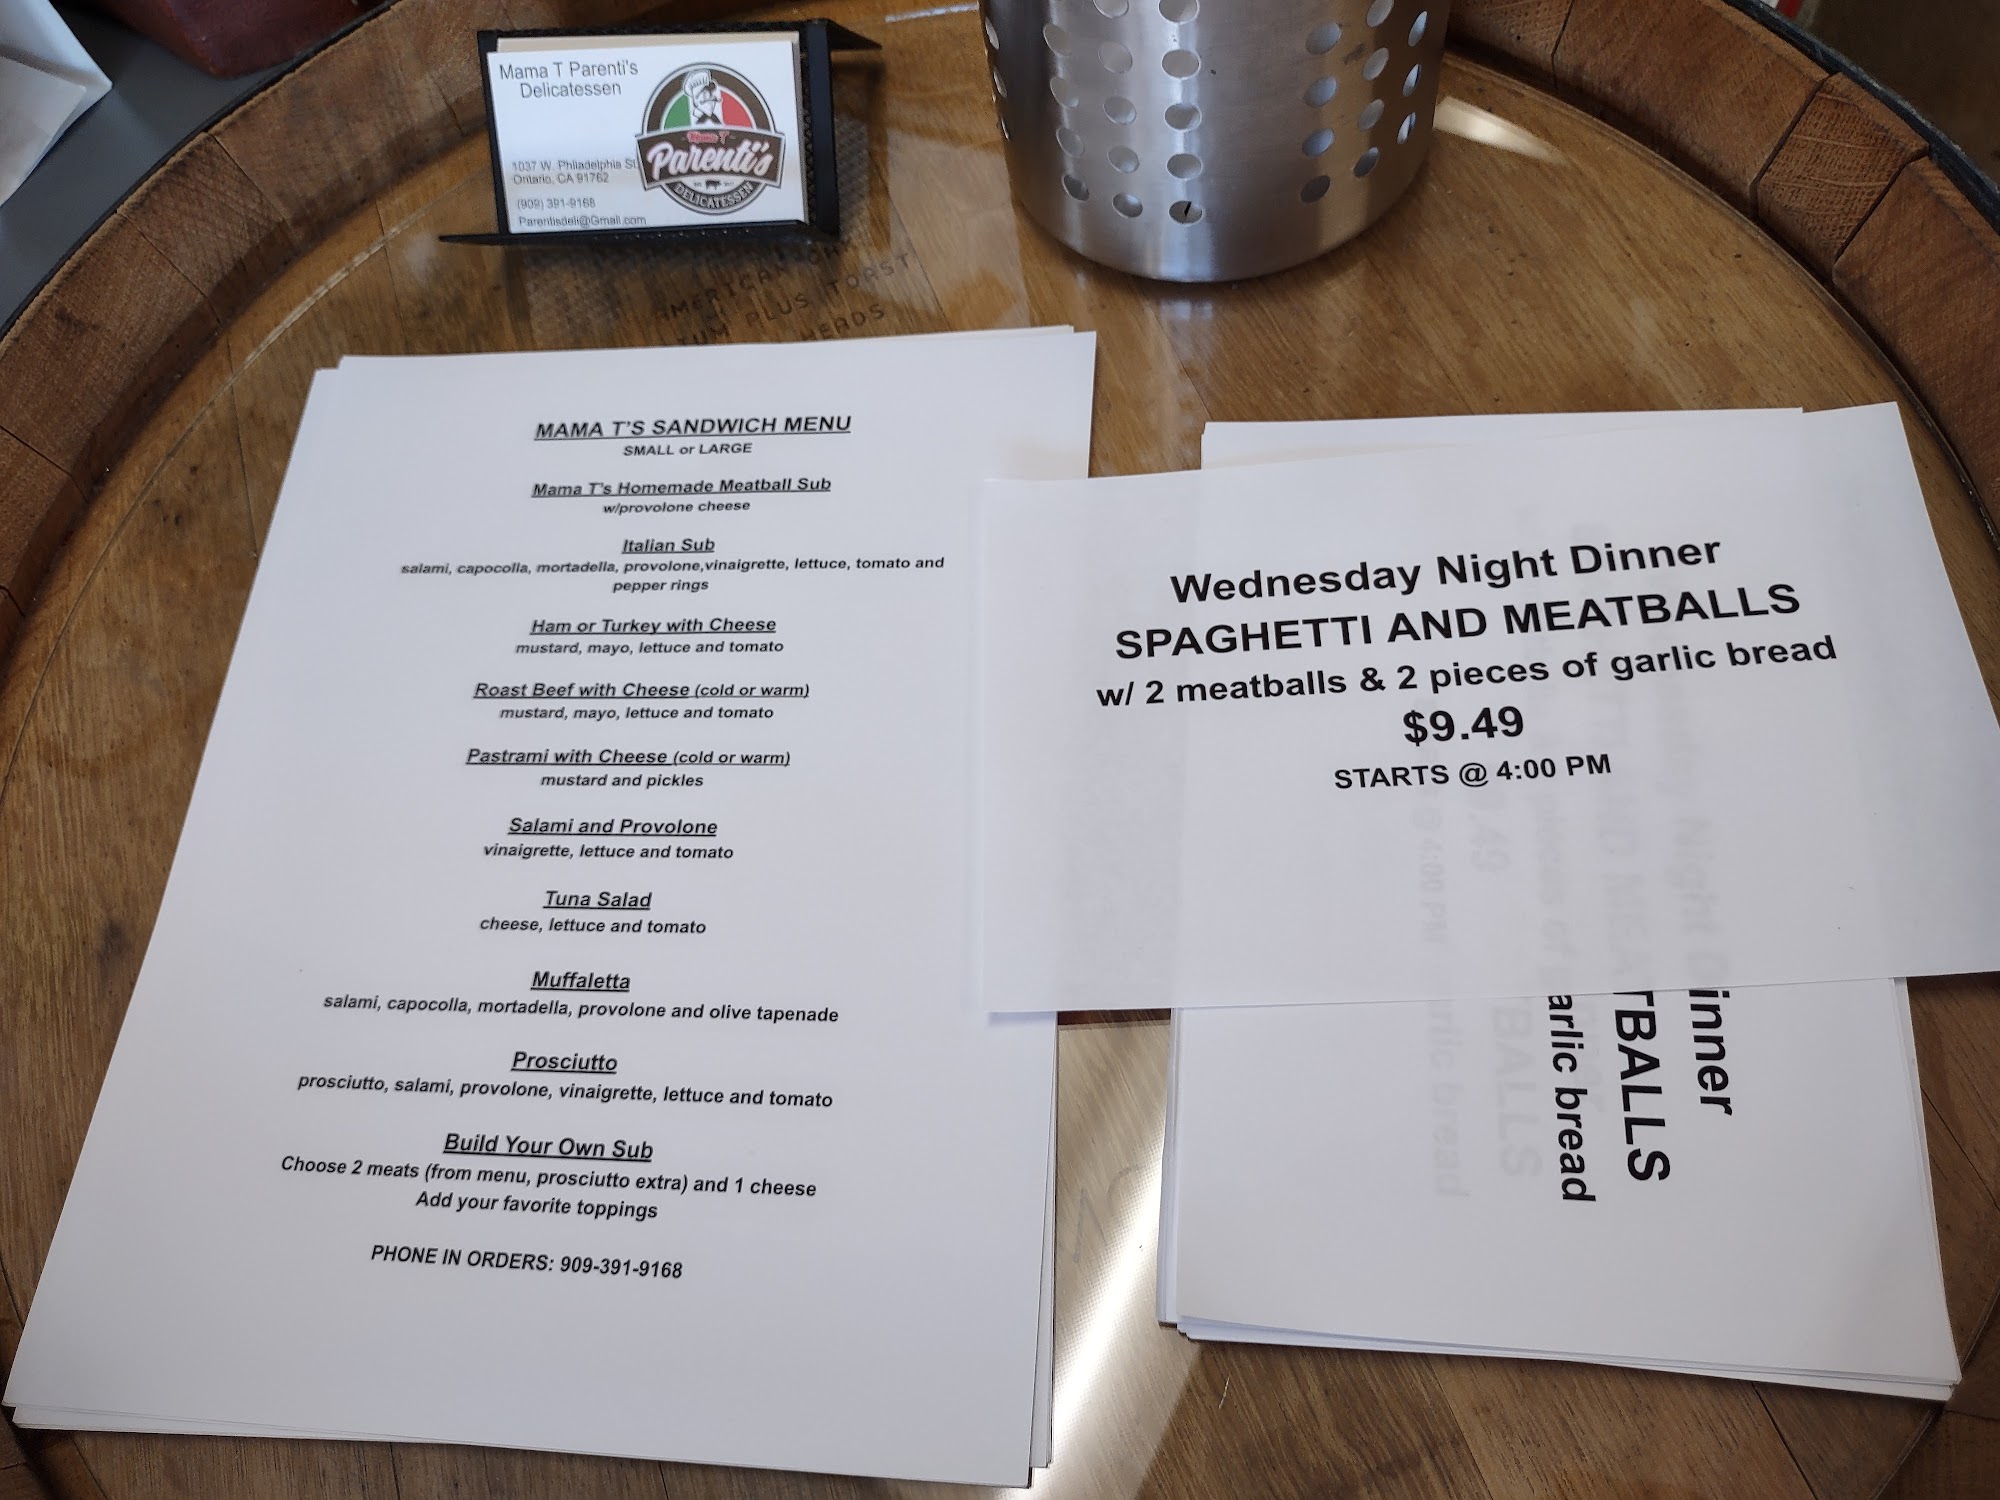 Mama T Parenti's
Delicatessen
1037 W. Philadelphia St
Ontario, CA 91762
(909) 391-9168
Parentisdeli@Gmail.com
Mama T
Parenti's
DELICATESSEN
AMERICAN
PLUS TOAST
HEADS
MAMA T'S SANDWICH MENU
SMALL or LARGE
Mama T's Homemade Meatball Sub
w/provolone cheese
Italian Sub
salami, capocolla, mortadella, provolone,vinaigrette, lettuce, tomato and
pepper rings
Ham or Turkey with Cheese
mustard, mayo, lettuce and tomato
Roast Beef with Cheese (cold or warm)
mustard, mayo, lettuce and tomato
Pastrami with Cheese (cold or warm)
mustard and pickles
Salami and Provolone
vinaigrette, lettuce and tomato
Tuna Salad
cheese, lettuce and tomato
Muffaletta
salami, capocolla, mortadella, provolone and olive tapenade
Prosciutto
prosciutto, salami, provolone, vinaigrette, lettuce and tomato
Build Your Own Sub
Choose 2 meats (from menu, prosciutto extra) and 1 cheese
Add your favorite toppings
PHONE IN ORDERS: 909-391-9168
Wednesday Night Dinner
SPAGHETTI AND MEATBALLS
w/ 2 meatballs & 2 pieces of garlic bread
$9.49
STARTS @ 4:00 PM
inner
TBALLS
arlic bread